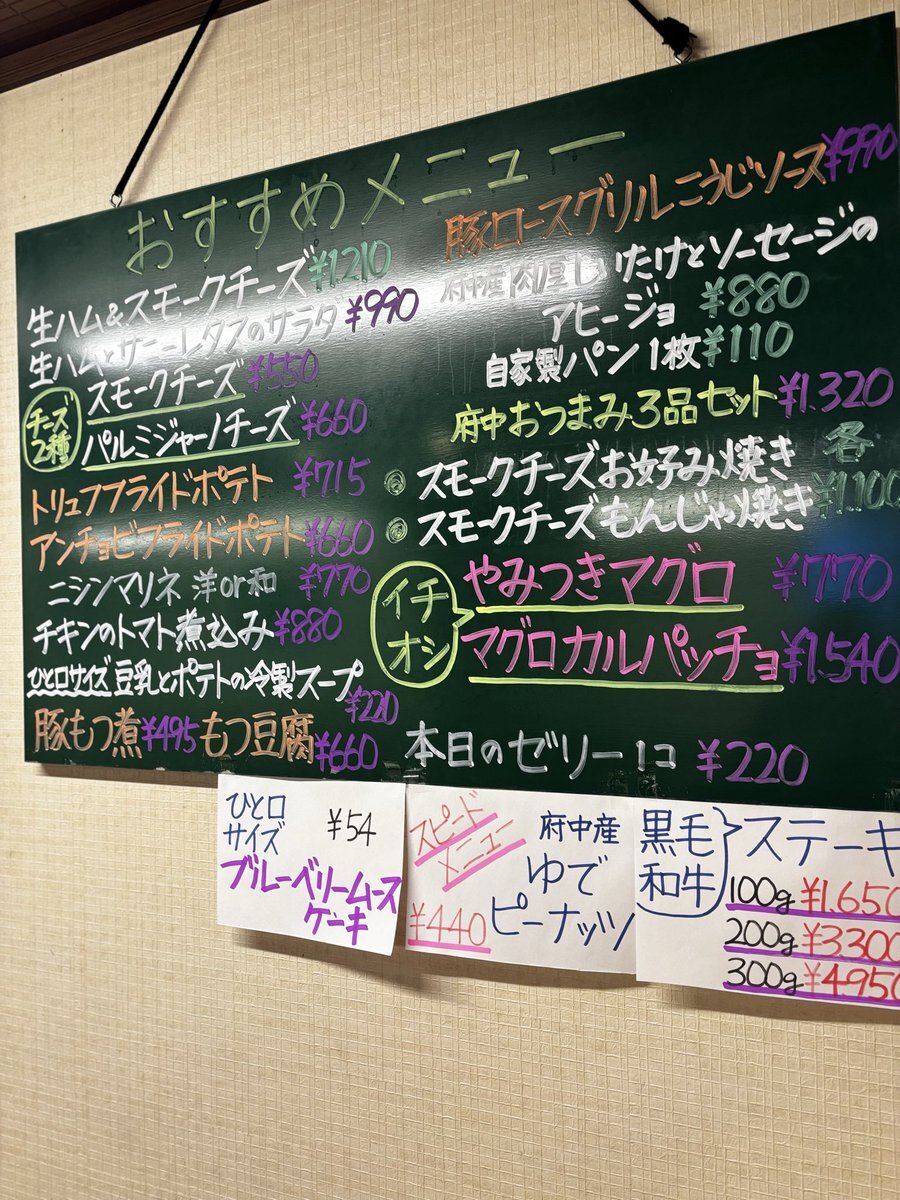 おすすめメニュー
生ハム&スモークチーズ ¥1,210
生ハムとサニーレタスのサラダ ¥990
チーズ2種
スモークチーズ ¥550
パルミジャーノチーズ ¥660
トリュフフライドポテト ¥715
アンチョビフライドポテト ¥660
ニシンマリネ 洋or和 ¥770
チキンのトマト煮込み ¥880
ひと口サイズ 豆乳とポテトの冷製スープ ¥220
豚もつ煮 ¥495 もつ豆腐 ¥660
豚ロースグリルこうじソース ¥990
府中産 肉厚しいたけとソーセージの
アヒージョ ¥880
自家製パン1枚 ¥110
府中おつまみ3品セット ¥1,320
スモークチーズお好み焼き 各
スモークチーズもんじゃ焼き ¥1,100
イチオシ
やみつきマグロ ¥770
マグロカルパッチョ ¥1,540
本日のゼリー1コ ¥220
ひと口
サイズ ¥54
ブルーベリームース
ケーキ
スピード
メニュー
¥440
府中産
ゆで
ピーナッツ
黒毛
和牛
ステーキ
100g ¥1,650
200g ¥3300
300g ¥4950